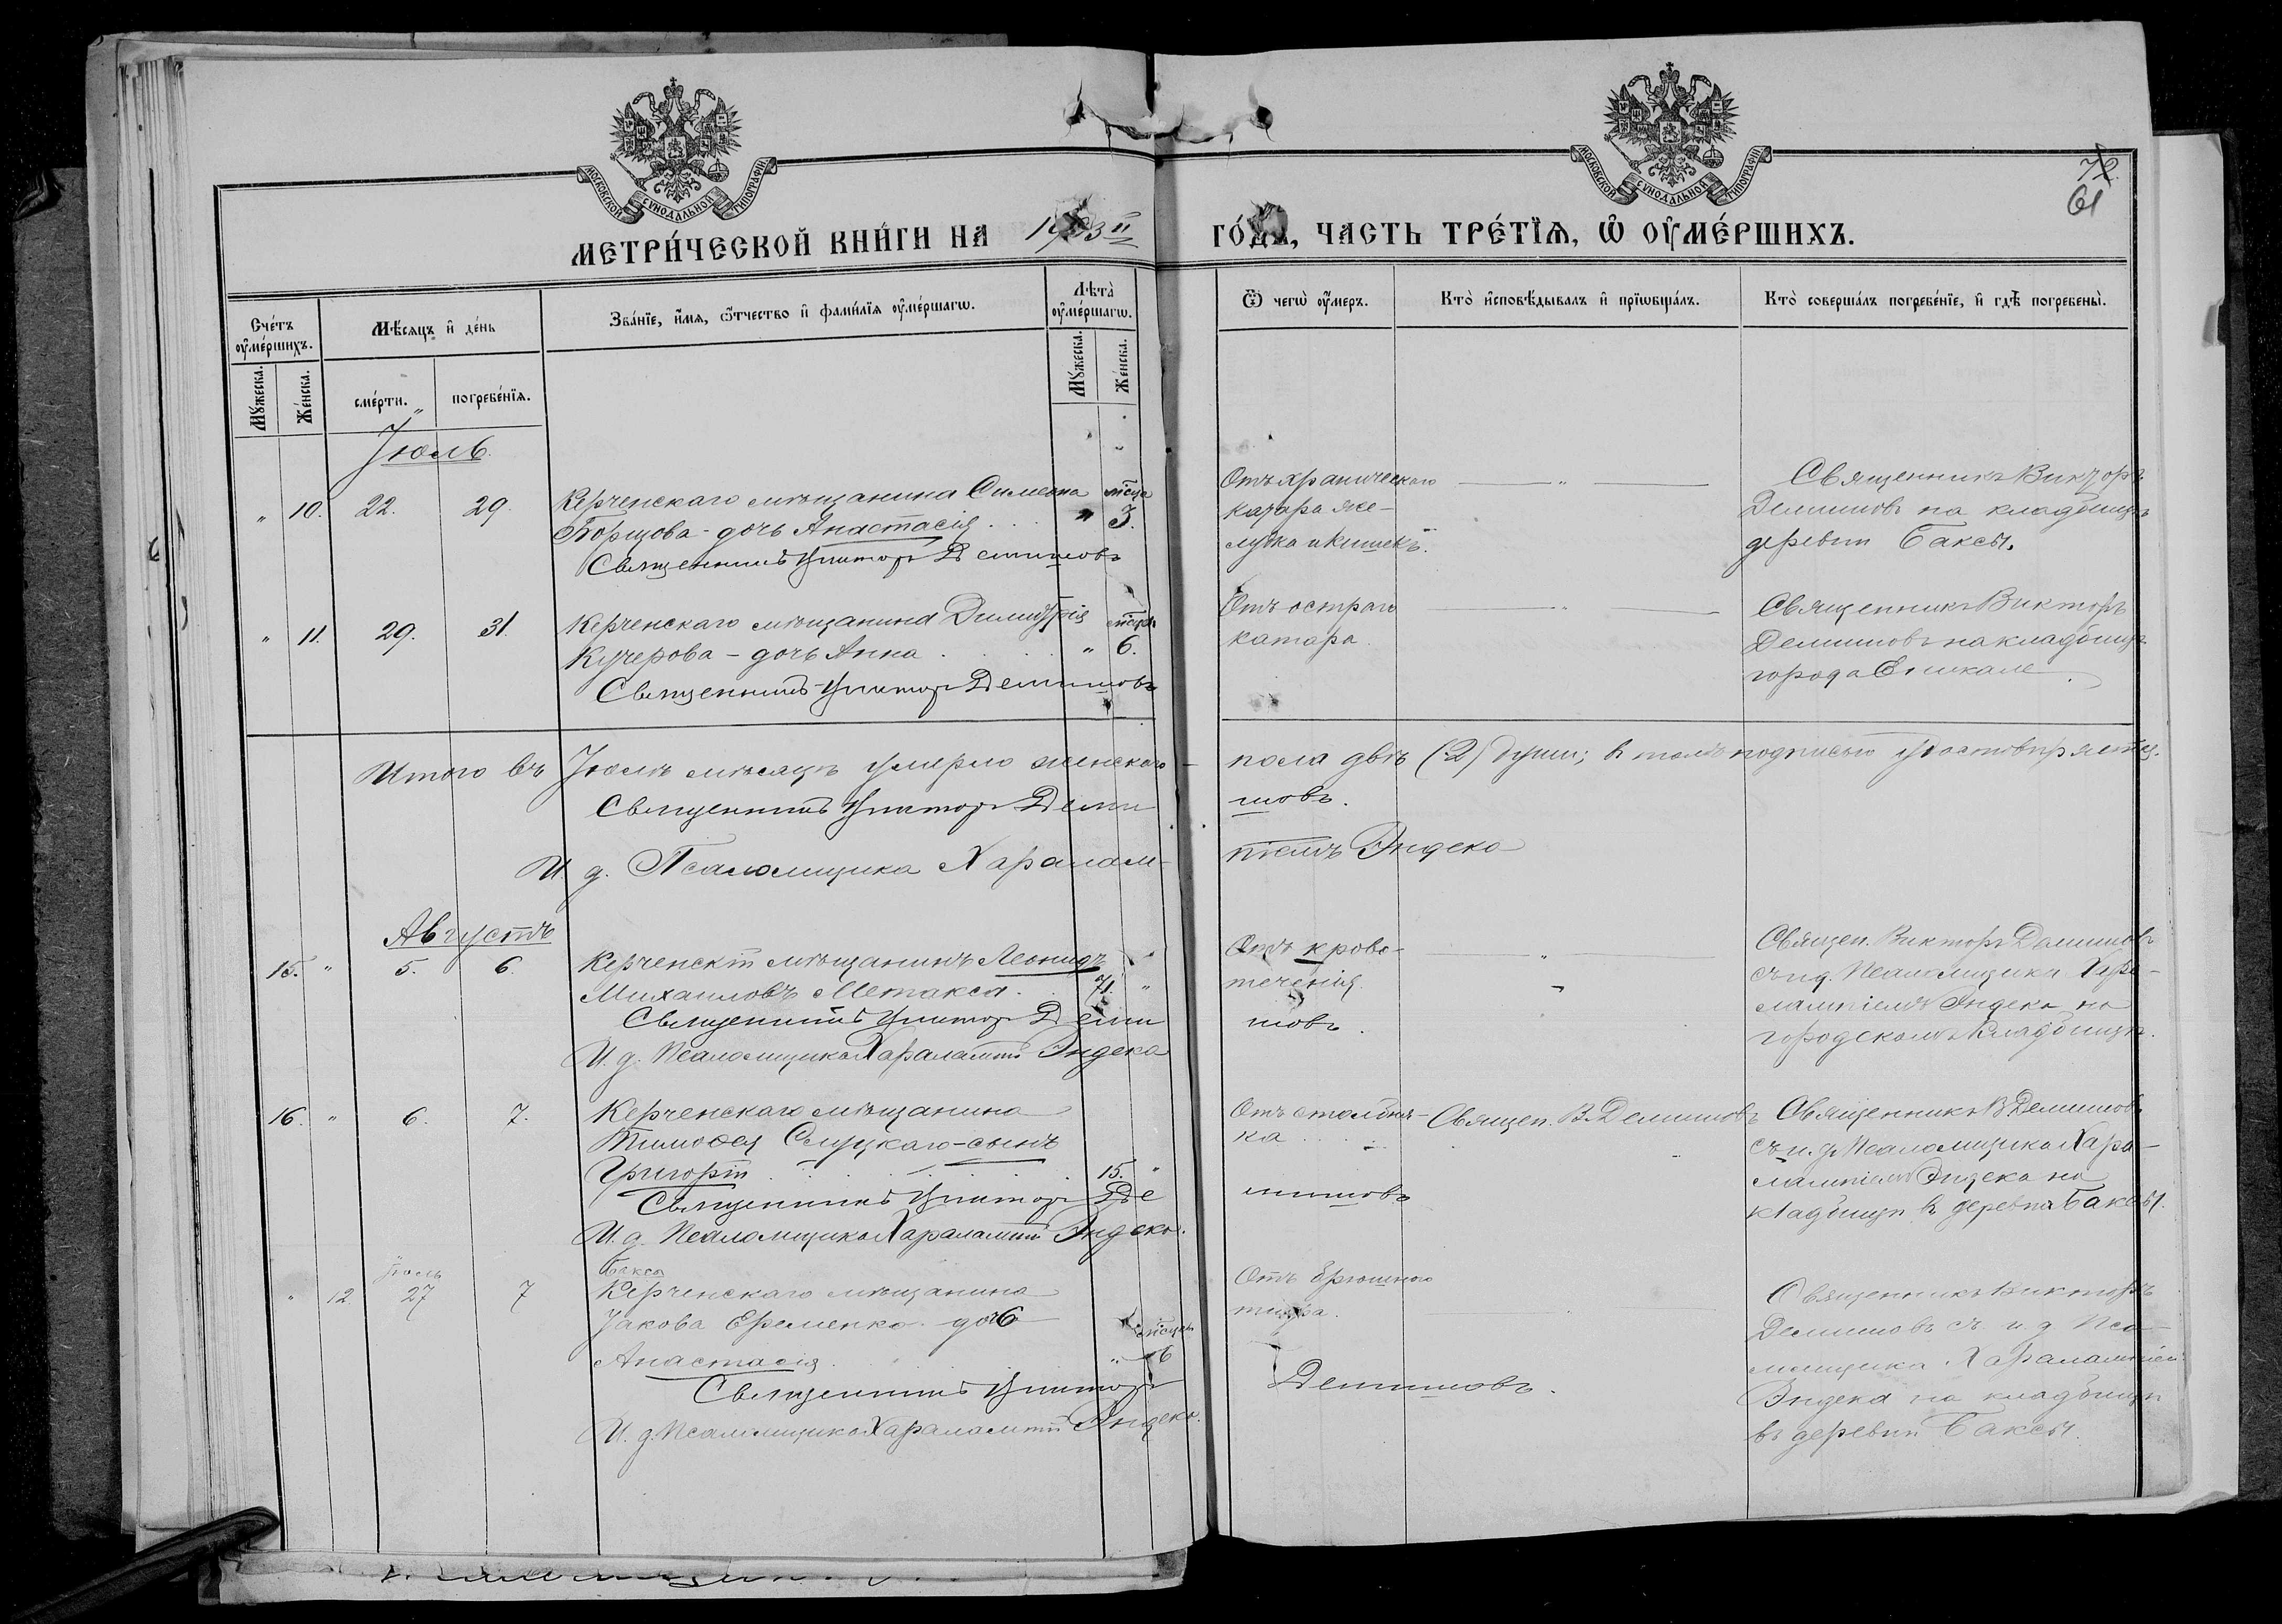 МОСКОВСКОЙ СѴНОДАЛЬНОЙ ТИПОГРАФІИ
МОСКОВСКОЙ СѴНОДАЛЬНОЙ ТИПОГРАФІИ
61
МЕТРИ́ЧЕСКОЙ КНИ́ГИ НА 1903 ГО́ДЪ, ЧАСТЬ ТРЕ́ТЇѦ, Ѡ҆ ОУ҆МЕ́РШИХЪ.
Сче́тъ оу҆ме́ршихъ.
Мѣ́сѧцъ и҆ де́нь
Зва́нїе, и҆́мѧ, ѻ҆́тчество и҆ фами́лїѧ оу҆ме́ршагѡ.
Лѣ́та̀ оу҆ме́ршагѡ.
Ѿ чегѡ̀ оу҆́меръ.
Кто̀ и҆сповѣ́дывалъ и҆ прїѡбща́лъ.
Кто̀ соверша́лъ погребе́нїе, и҆ гдѣ̀ погребены̀.
Мꙋ́жеска.
Же́нска.
сме́рти.
погребе́нїѧ.
Мꙋ́жеска.
Же́нска.
Іюль
" 10. 22. 29. Керченскаго мѣщанина Симеона мѣсца
Борщова - дочь Анастасія . . . " 3.
Священникъ Викторъ Демишовъ
Отъ хроническаго
катара же-
лудка и кишекъ.
Священникъ Викторъ
Демишовъ на кладбищѣ
деревни Баксы.
" 11. 29. 31. Керченскаго мѣщанина Димитрія мѣсц.
Кучерова - дочь Анна . . . " 6.
Священникъ Викторъ Демишовъ
Отъ остраго
катара.
Священникъ Викторъ
Демишовъ на кладбищѣ
города Еникале.
Итого въ Іюлѣ мѣсяцѣ умерло женскаго пола двѣ (2) души; въ томъ подписью удостовѣряемъ.
Священникъ Викторъ Демишовъ.
И. д. Псаломщика Харалампіемъ Эндека
Августъ
15. " 5. 6. Керченскій мѣщанинъ Леонидъ
Михаиловъ Метакса . 71. "
Священникъ Викторъ Демишовъ.
И. д. Псаломщика Харалампій Эндека
Отъ крово-
теченія.
Священ. Викторъ Демишовъ
съ и. д. Псаломщика Хара-
лампіемъ Эндека на
городскомъ кладбищѣ.
16. " 6. 7. Керченскаго мѣщанина
Тимоѳея Слуцкаго - сынъ
Григорій . . . 15. "
Священникъ Викторъ Демишовъ
И. д. Псаломщика Харалампій Эндека.
Отъ столбня-
ка
Священ. В. Демишовъ
Священникъ В. Демишовъ
съ и. д. Псаломщика Хара-
лампіемъ Эндека на
кладбищѣ въ деревнѣ Баксы.
Іюль Баксы
" 12. 27 7 Керченскаго мѣщанина
Іакова Еременко дочь мѣсцевъ
Анастасія . . . " 6
Священникъ Викторъ Демишовъ.
И. д. Псаломщика Харалампій Эндека.
Отъ брюшного
тифа.
Священникъ Викторъ
Демишовъ съ и. д. Пса-
ломщика Харалампіемъ
Эндека на кладбищѣ
въ деревни Баксы.